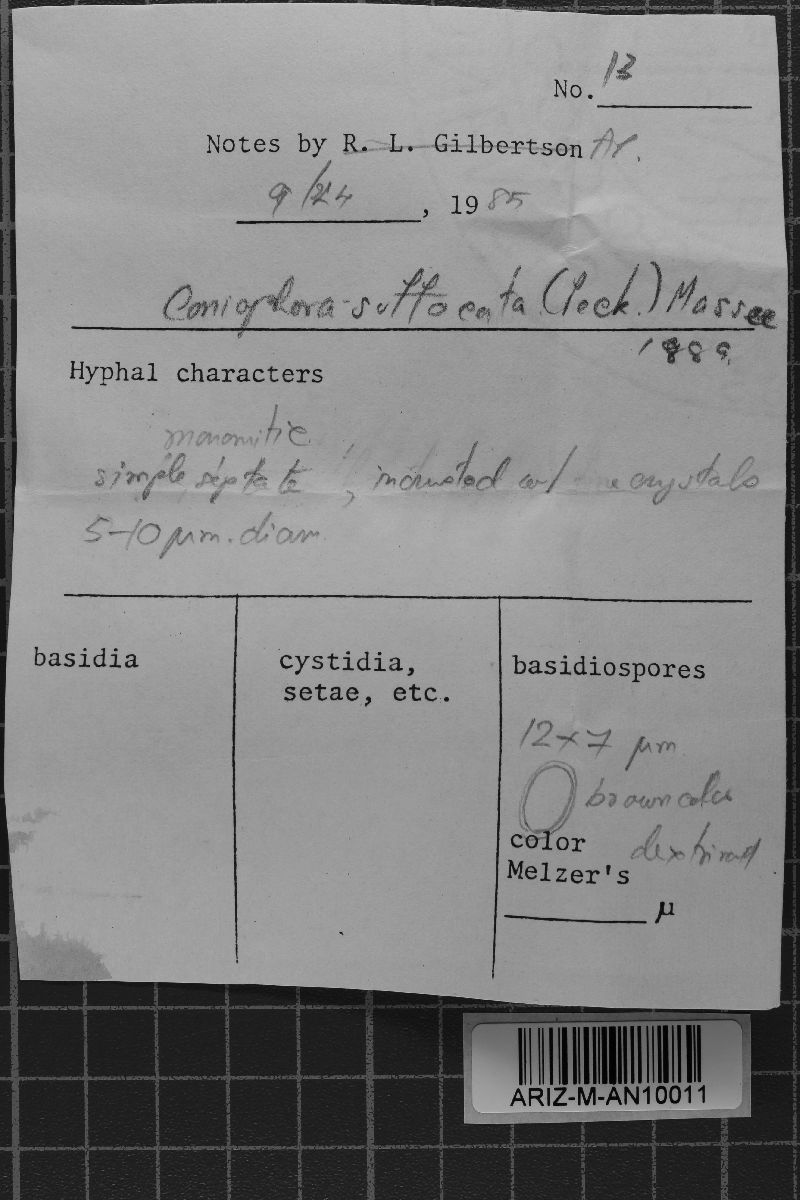 No. 13
Notes by R. L. Gilbertson
9/24, 1985
Coniophora suffocata (Peck.) Massee
1889.
Hyphal characters
monomitic
simple septate, incrusted w/ crystals
5-10 µm. diam.
basidia
cystidia,
setae, etc.
basidiospores
12×7 µm
brown color
color
Melzer's
dextrinoid
µ
ARIZ-M-AN10011